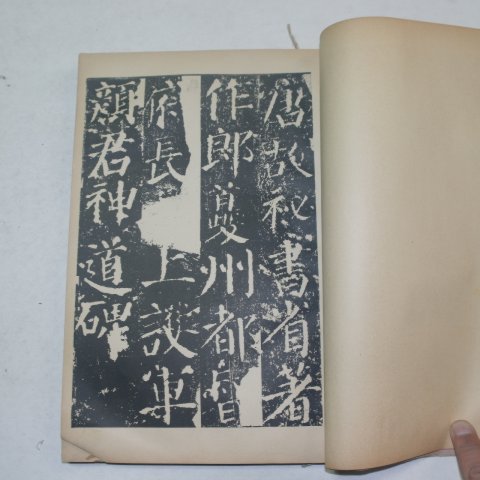 唐故秘書省著
作郎夔州都督
府長上護軍
顏君神道碑